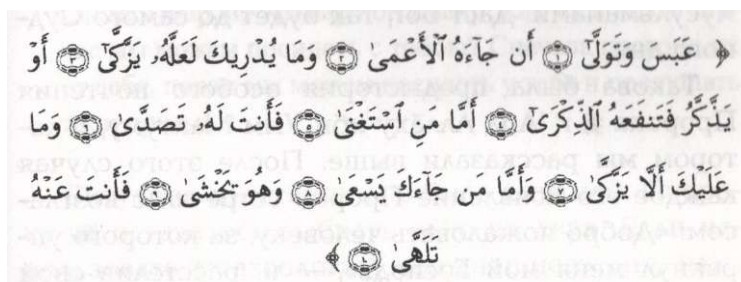 ﴿ عَبَسَ وَتَوَلَّىٰٓ ۝١ أَن جَآءَهُ ٱلْأَعْمَىٰ ۝٢ وَمَا يُدْرِيكَ لَعَلَّهُۥ يَزَّكَّىٰٓ ۝٣ أَوْ
يَذَّكَّرُ فَتَنفَعَهُ ٱلذِّكْرَىٰٓ ۝٤ أَمَّا مَنِ ٱسْتَغْنَىٰ ۝٥ فَأَنتَ لَهُۥ تَصَدَّىٰ ۝٦ وَمَا
عَلَيْكَ أَلَّا يَزَّكَّىٰ ۝٧ وَأَمَّا مَن جَآءَكَ يَسْعَىٰ ۝٨ وَهُوَ يَخْشَىٰ ۝٩ فَأَنتَ عَنْهُ
تَلَهَّىٰ ۝١٠ ﴾